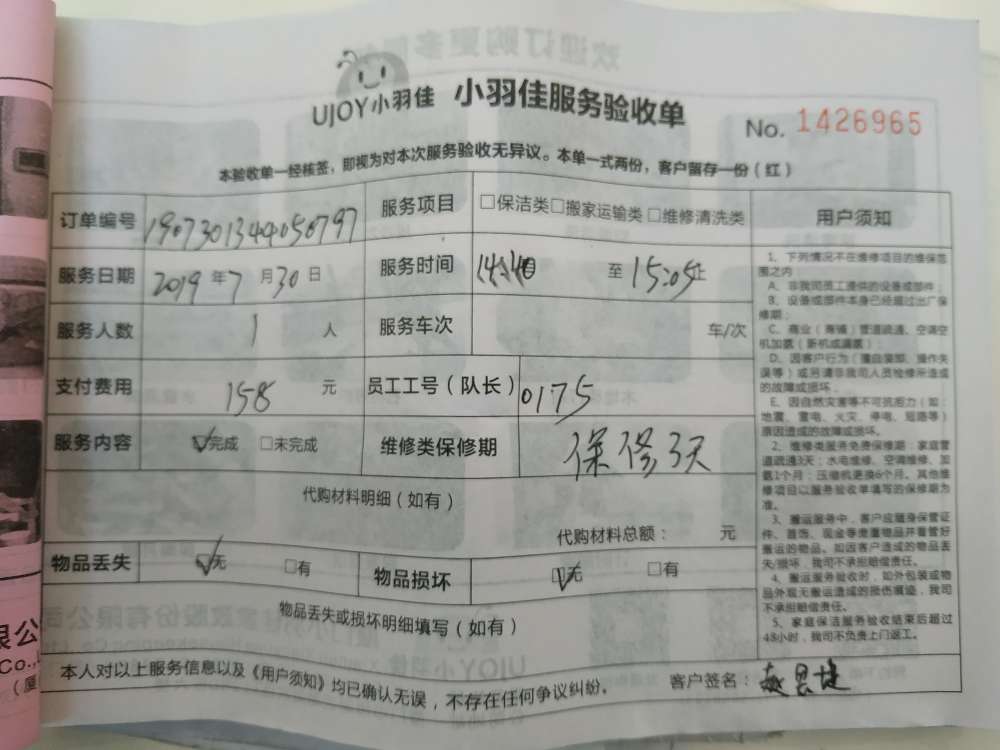 UJOY小羽佳 小羽佳服务验收单 No. 1426965
本验收单一经核签，即视为对本次服务验收无异议。本单一式两份，客户留存一份（红）
订单编号 1907301344050797 服务项目 □保洁类□搬家运输类□维修清洗类
服务日期 2019年7月30日 服务时间 14:40 至 15:05止
服务人数 1 人 服务车次 车/次
支付费用 158 元 员工工号（队长）0175
服务内容 ☑完成 □未完成 维修类保修期 保修3天
代购材料明细（如有）
代购材料总额： 元
物品丢失 ☑无 □有 物品损坏 ☑无 □有
物品丢失或损坏明细填写（如有）
用户须知
1、下列情况不在维修项目的维保范
围之内
A、非我司员工提供的设备或部件；
B、设备或部件本身已经超过出厂保
修期；
C、商业（商铺）管道疏通、空调空
机加氨（新机或漏氨）；
D、因客户行为（擅自装卸、操作失
误等）或另请非我司人员检修所造成
的故障或损坏．
E、因自然灾害等不可抗拒力（如：
地震、雷电、火灾、停电、短路等）
原因造成的故障或损坏。
2、维修类服务免费保修期：家庭管
道疏通3天；水电维修、空调维修、加
氨1个月；压缩机更换6个月。其他维
修项目以服务验收单填写的保修期为
准。
3、搬运服务中，客户应随身保管证
件、首饰、现金等贵重物品并看管好
搬运的物品。如因客户造成的物品丢
失/损坏，我司不承担赔偿责任。
4、搬运服务验收时，如外包装或物
品外观无搬运造成的损伤痕迹，我司
不承担赔偿责任。
5、家庭保洁服务验收结束后超过
48小时，我司不负责上门返工。
本人对以上服务信息以及《用户须知》均已确认无误，不存在任何争议纠纷。 客户签名：
限公
Co.,
（厦